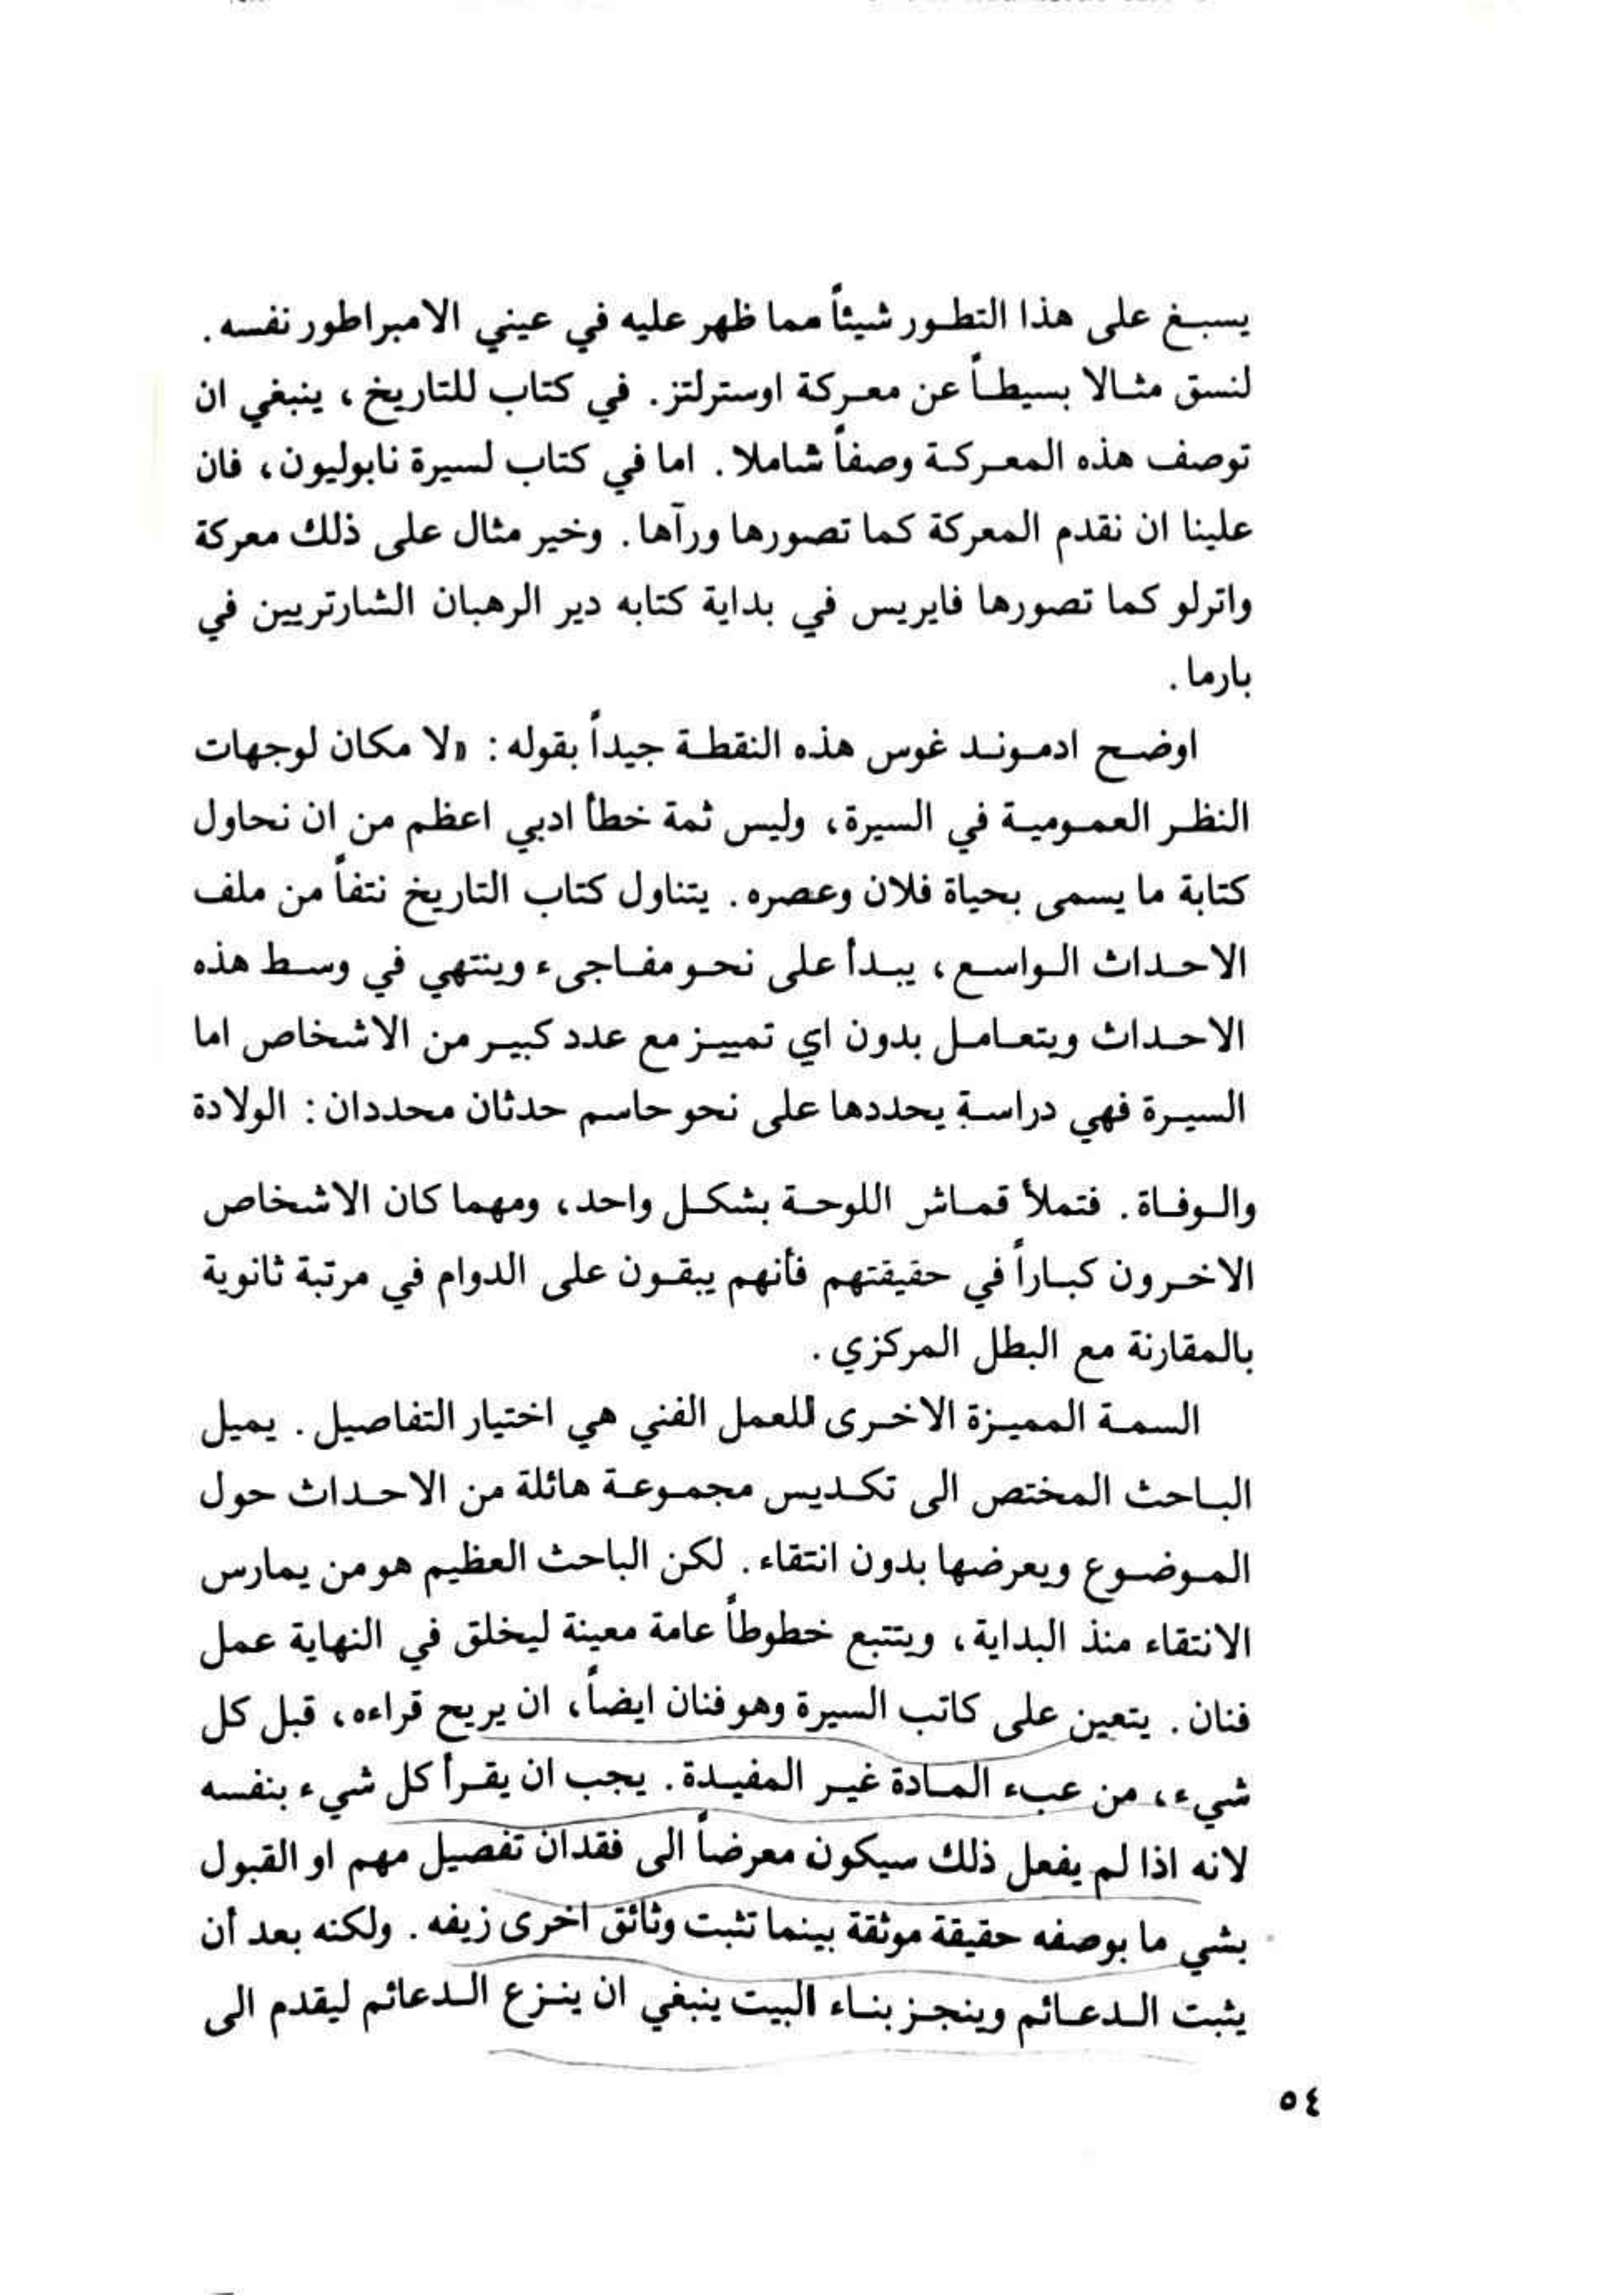 يسبغ على هذا التطور شيئاً مما ظهر عليه في عيني الامبراطور نفسه.
لنسق مثالا بسيطاً عن معركة اوسترلتز. في كتاب للتاريخ، ينبغي ان
توصف هذه المعركة وصفاً شاملا. اما في كتاب لسيرة نابوليون، فان
علينا ان نقدم المعركة كما تصورها ورآها. وخير مثال على ذلك معركة
واترلو كما تصورها فايريس في بداية كتابه دير الرهبان الشارتريين في
بارما.
اوضح ادموند غوس هذه النقطة جيداً بقوله: «لا مكان لوجهات
النظر العمومية في السيرة، وليس ثمة خطأ ادبي اعظم من ان نحاول
كتابة ما يسمى بحياة فلان وعصره. يتناول كتاب التاريخ نتفاً من ملف
الاحداث الواسع، يبدأ على نحو مفاجىء وينتهي في وسط هذه
الاحداث ويتعامل بدون اي تمييز مع عدد كبير من الاشخاص اما
السيرة فهي دراسة يحددها على نحو حاسم حدثان محددان: الولادة
والوفاة. فتملأ قماش اللوحة بشكل واحد، ومهما كان الاشخاص
الاخرون كباراً في حقيقتهم فأنهم يبقون على الدوام في مرتبة ثانوية
بالمقارنة مع البطل المركزي.
السمة المميزة الاخرى للعمل الفني هي اختيار التفاصيل. يميل
الباحث المختص الى تكديس مجموعة هائلة من الاحداث حول
الموضوع ويعرضها بدون انتقاء. لكن الباحث العظيم هو من يمارس
الانتقاء منذ البداية، ويتتبع خطوطاً عامة معينة ليخلق في النهاية عمل
فنان. يتعين على كاتب السيرة وهو فنان ايضاً، ان يريح قراءه، قبل كل
شيء، من عبء المادة غير المفيدة. يجب ان يقرأ كل شيء بنفسه
لانه اذا لم يفعل ذلك سيكون معرضاً الى فقدان تفصيل مهم او القبول
بشي ما بوصفه حقيقة موثقة بينما تثبت وثائق اخرى زيفه. ولكنه بعد أن
يثبت الدعائم وينجز بناء البيت ينبغي ان ينزع الدعائم ليقدم الى
٥٤